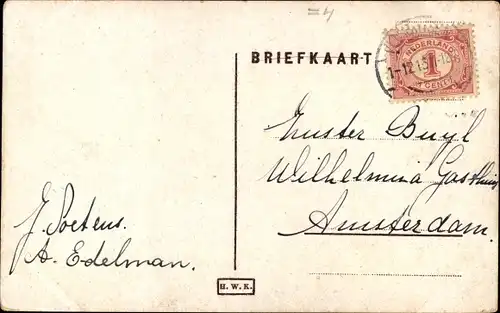 BRIEFKAART
NEDERLAND
1
CENT
Zuster Buyl
Wilhelmina Gasthuis
Amsterdam.
J. Poetens.
A. Edelman.
H. W. K.